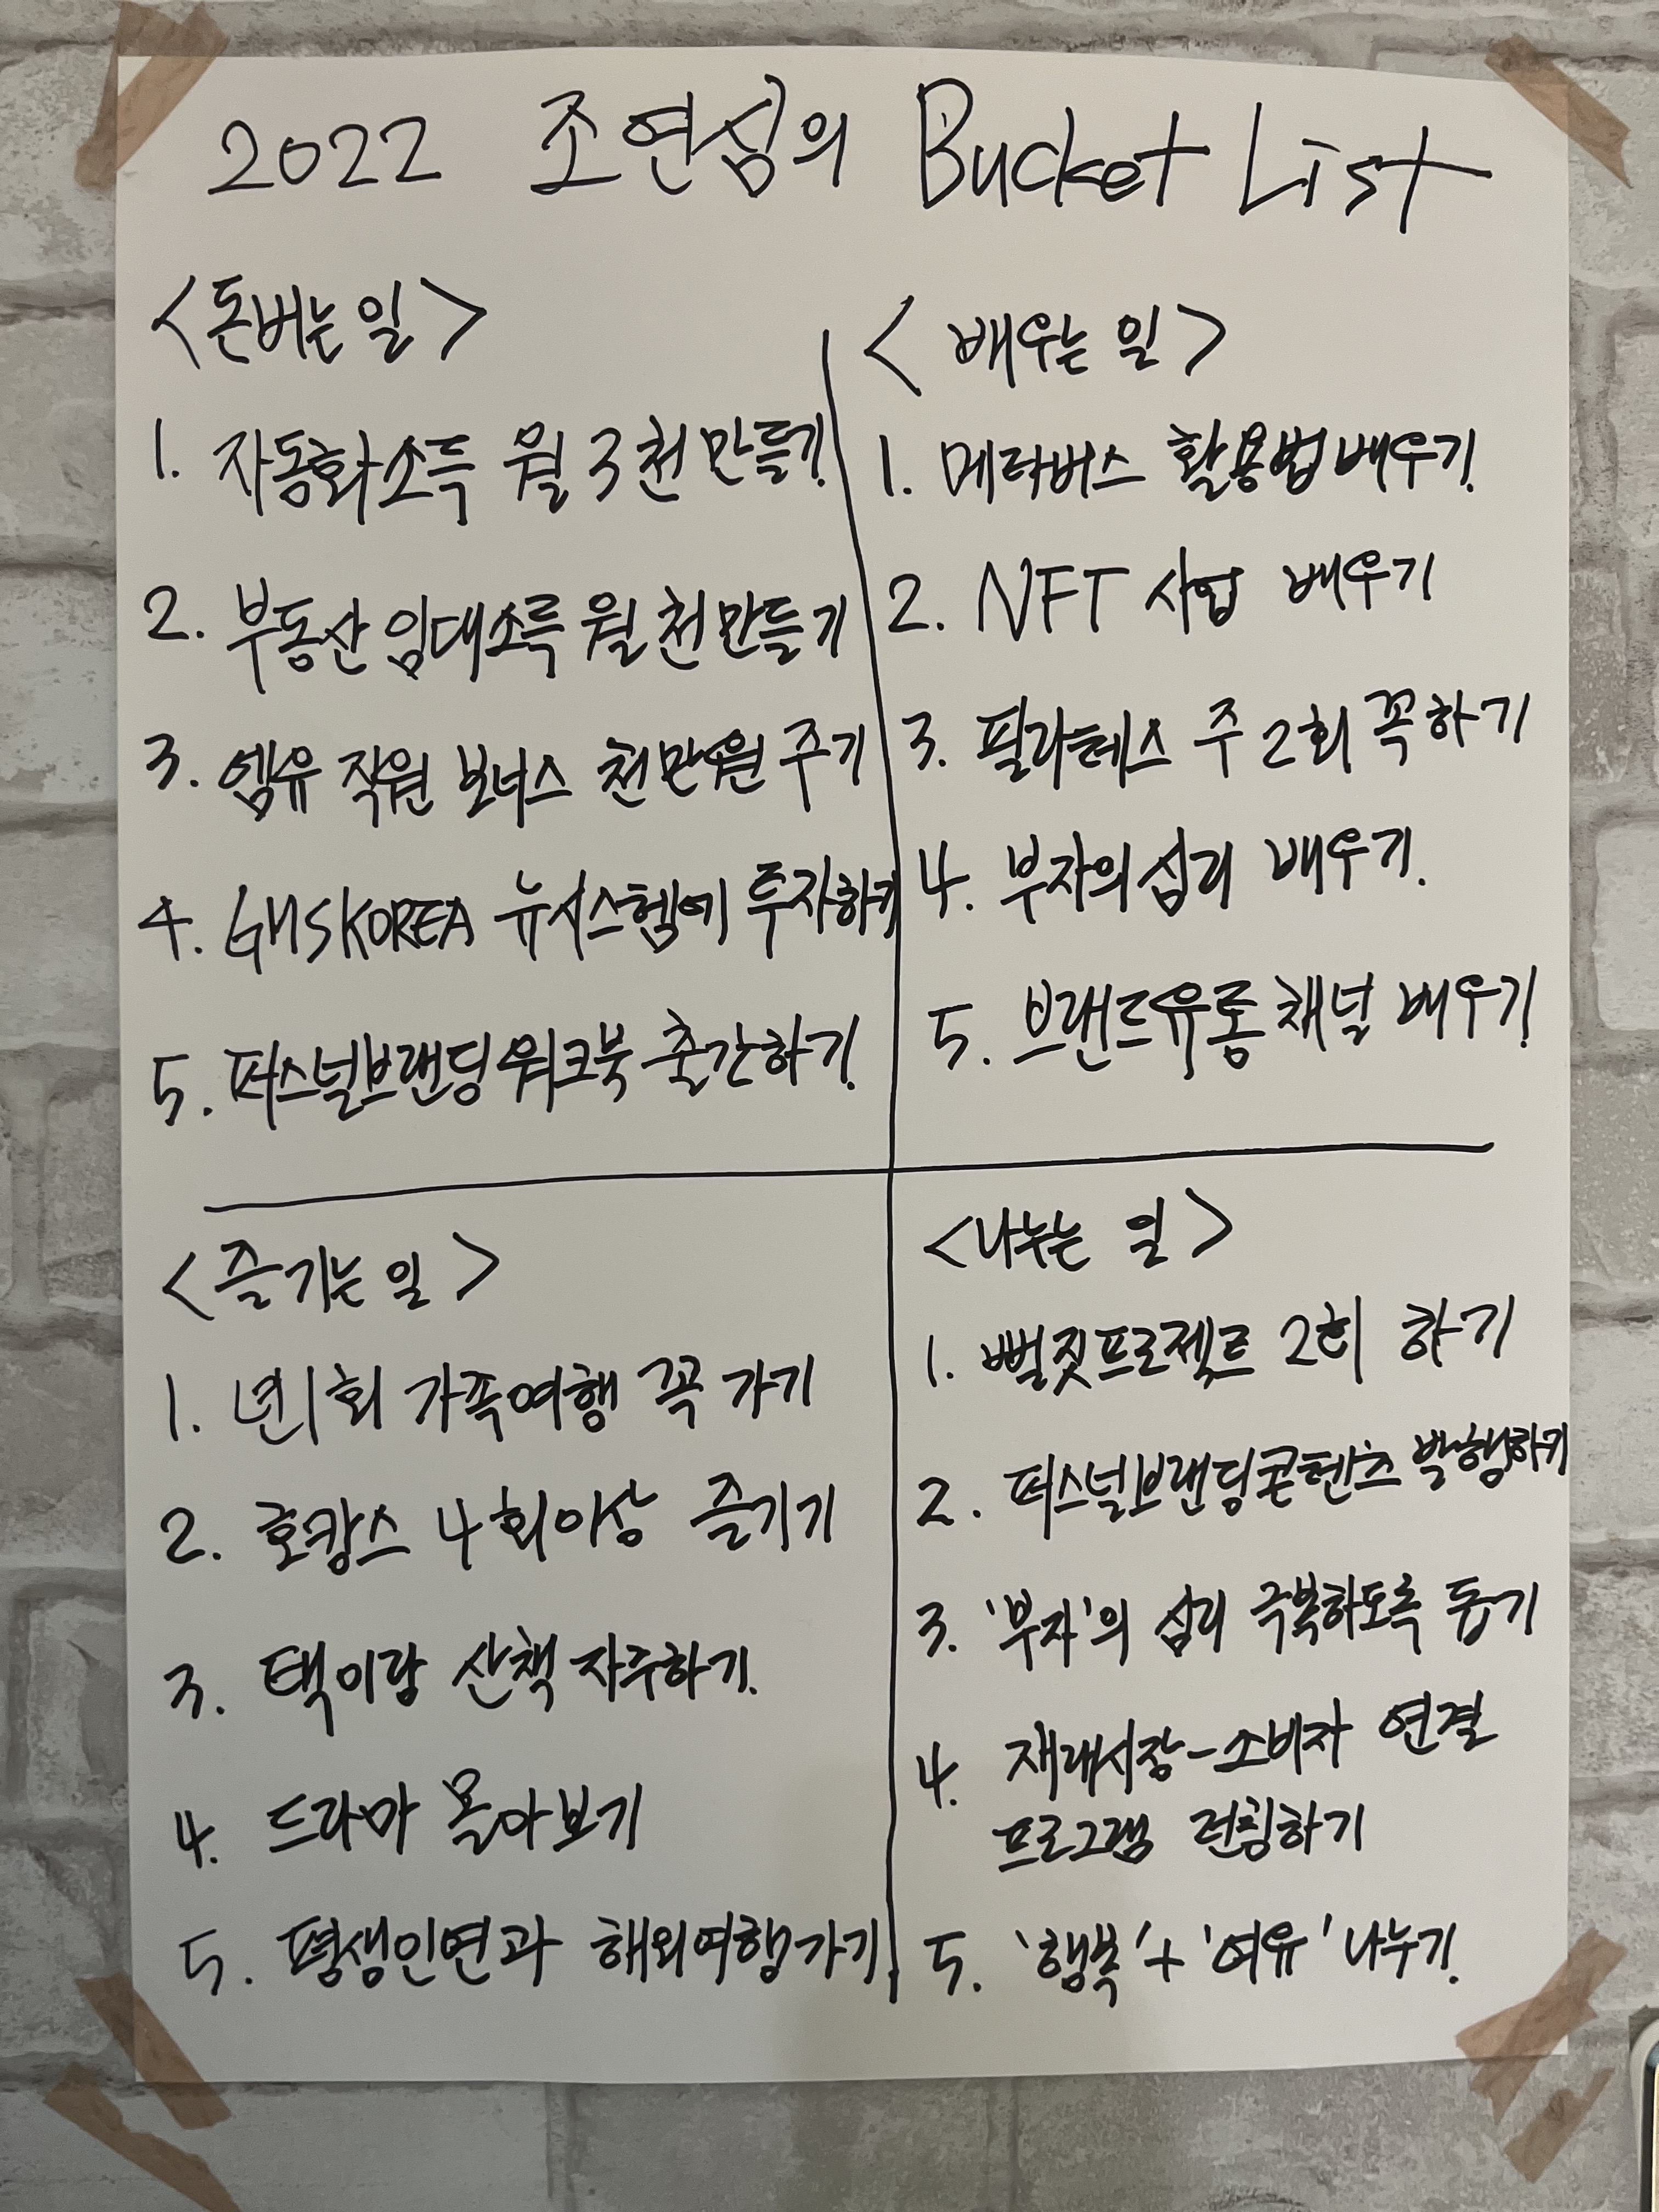 2022 조연심의 Bucket List
<돈버는 일>
1. 자동화소득 월 3천 만들기
2. 부동산 임대소득 월 천 만들기
3. 엠유 직원 보너스 천만원 주기
4. GMSKOREA 뉴시스템에 투자하기
5. 퍼스널브랜딩 워크북 출간하기.
<배우는 일>
1. 메타버스 활용법 배우기.
2. NFT 사업 배우기
3. 필라테스 주 2회 꼭 하기
4. 부자의 심리 배우기.
5. 브랜드유통 채널 배우기
<즐기는 일>
1. 년 1회 가족여행 꼭 가기
2. 호캉스 4회이상 즐기기
3. 택이랑 산책 자주하기.
4. 드라마 몰아보기
5. 평생인연과 해외여행가기.
<나누는 일>
1. 뻘짓프로젝트 2회 하기
2. 퍼스널브랜딩콘텐츠 발행하기
3. '부자'의 심리 극복하도록 돕기
4. 재래시장-소비자 연결
프로그램 런칭하기
5. '행복' + '여유' 나누기.